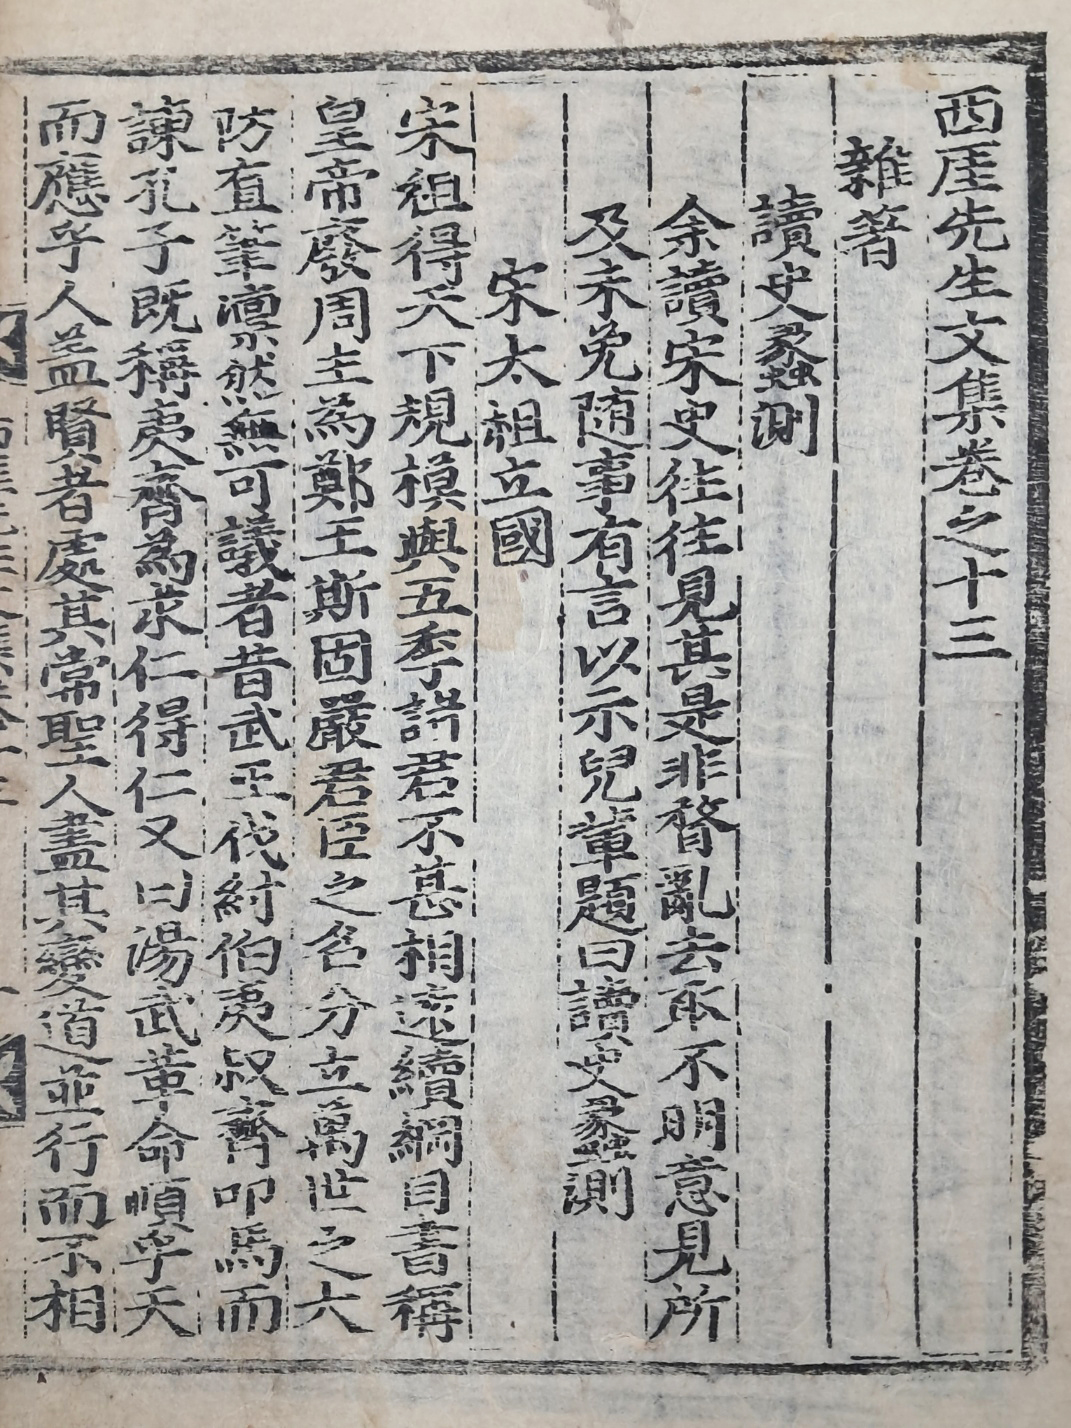 西厓先生文集卷之十三
雜著
讀史蠡測
余讀宋史往往見其是非瞀亂去取不明意見所
及未免随事有言以示兒軰題曰讀史蠡測
宋太祖立國
宋祖得天下規模與五季諸君不甚相遠續綱目書稱
皇帝廢周主為鄭王斯固嚴君臣之名分立萬世之大
防直筆凛然無可議者昔武王伐紂伯夷叔齊叩馬而
諫孔子既稱夷齊為求仁得仁又曰湯武革命順乎天
而應乎人盖賢者處其常聖人盡其變道並行而不相